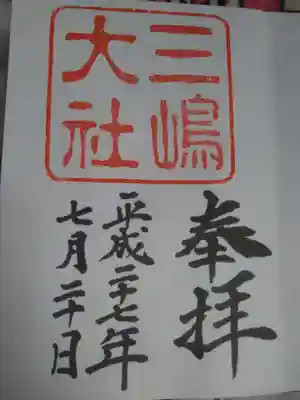 三嶋
大社
奉拝
平成二十七年
七月二十日